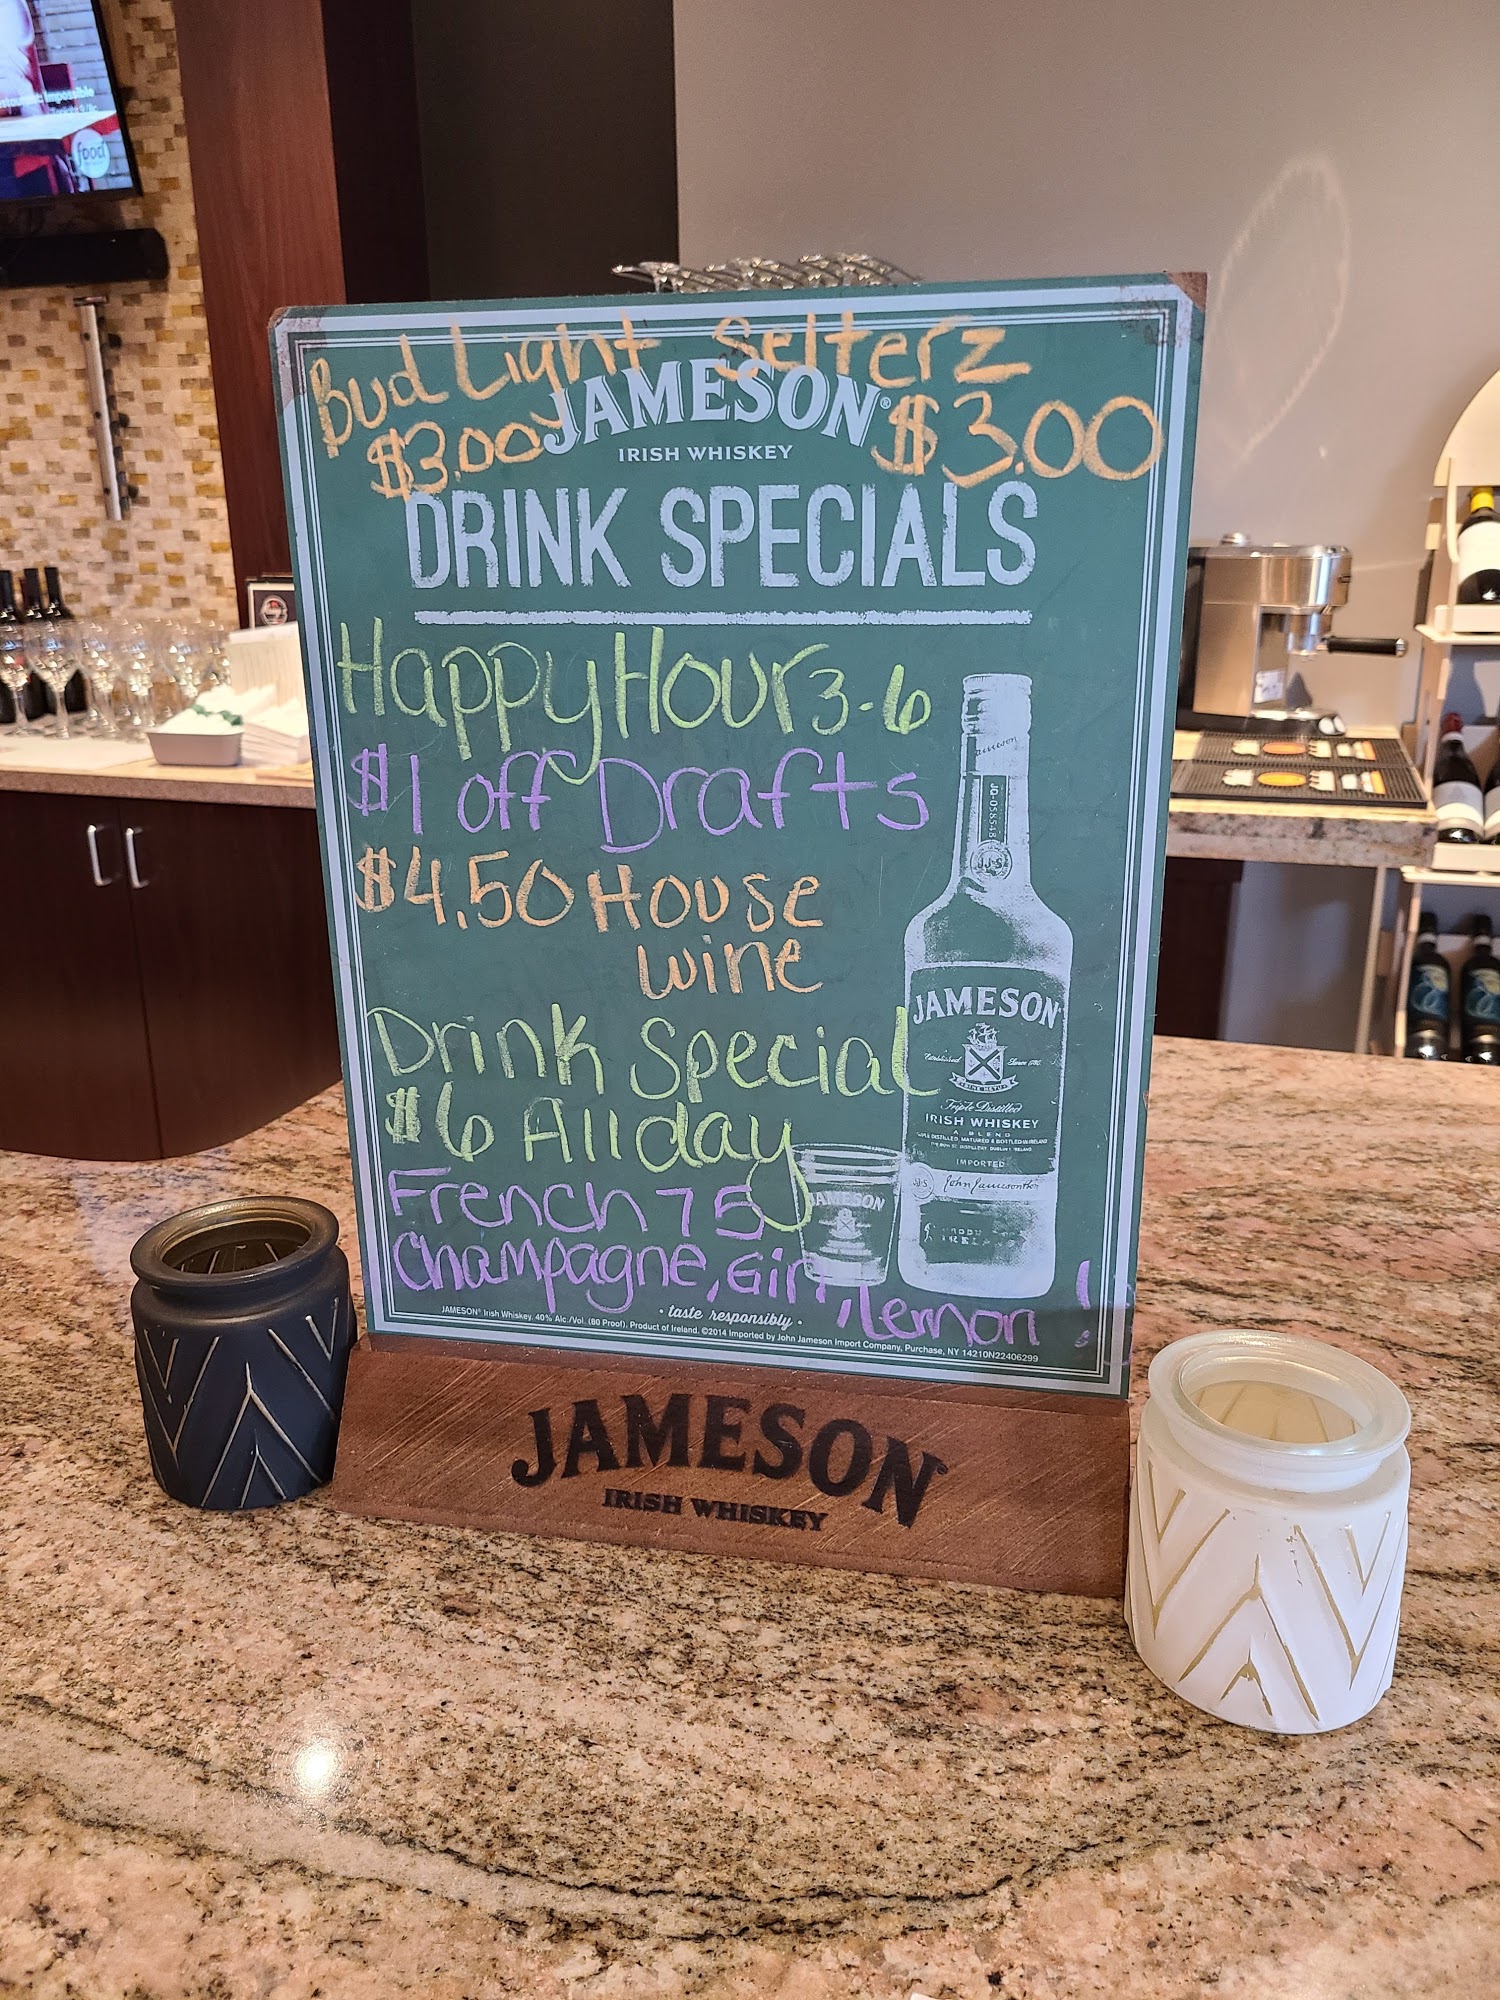 Impossible
food
Bud Light Selterz
$3.00 $3.00
JAMESON®
IRISH WHISKEY
DRINK SPECIALS
Happy Hour 3-6
$1 off Drafts
$4.50 House
wine
Drink Special
$6 All day
French 75
Champagne, Gin, Lemon !
Jameson
JJ&S
JAMESON
Established Since 1780
Triple Distilled
IRISH WHISKEY
A BLEND
IMPORTED
JJ&S John Jameson
JAMESON
• taste responsibly •
JAMESON® Irish Whiskey. 40% Alc./Vol. (80 Proof). Product of Ireland. ©2014 Imported by John Jameson Import Company, Purchase, NY 14210N22406299
JAMESON®
IRISH WHISKEY